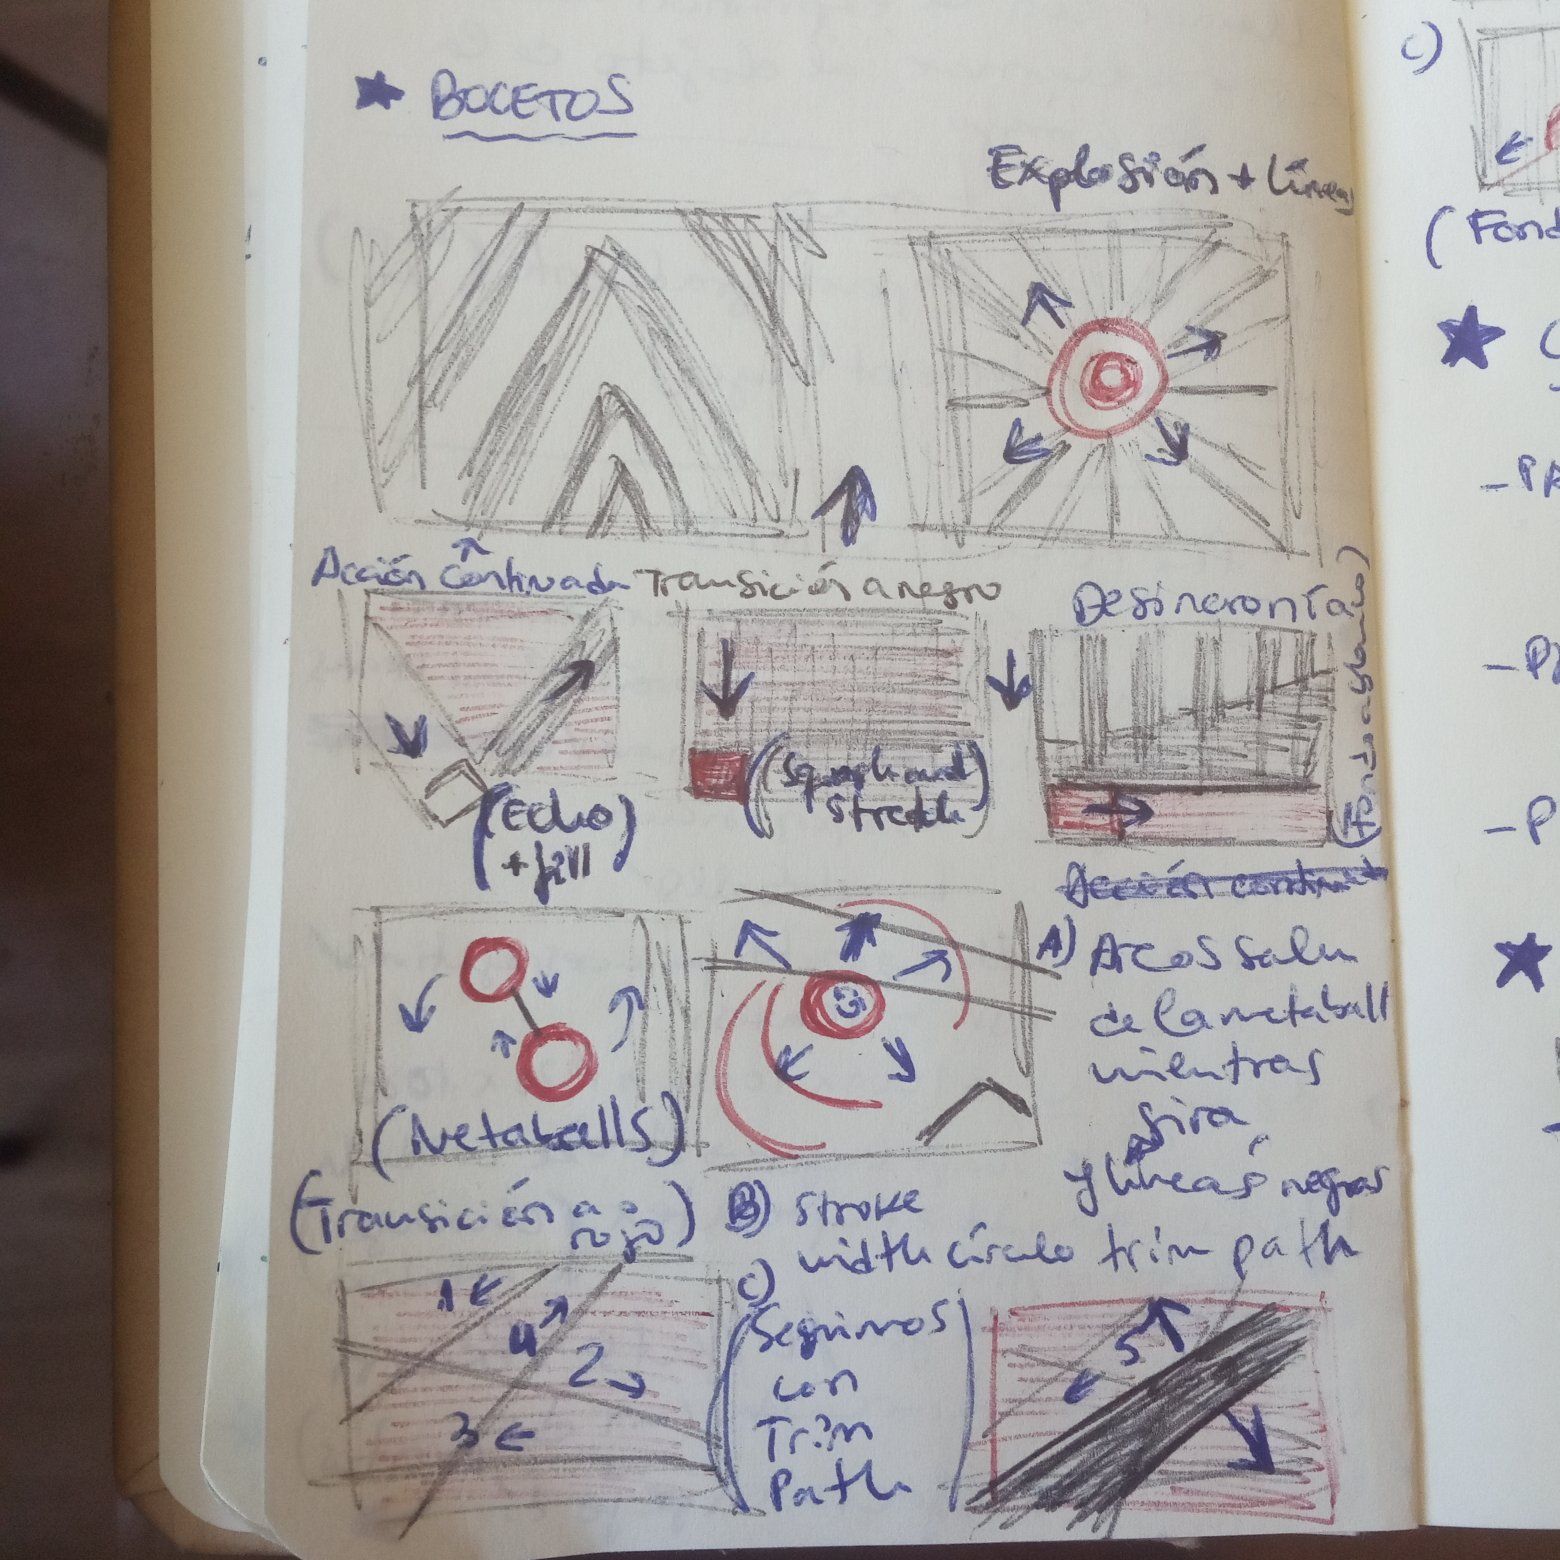 ★ BOCETOS
Explosión + líneas
Acción continuada
Transición a negro
Desincronía
(Fondo a blanco)
(Echo
+ fill)
(Squash and
Stretch)
Acción continuada
(Metaballs)
A) Arcos salen
de la metaball
mientras
gira
y líneas negras
(Transición a
rojo)
B) Stroke
width círculo trim path
C)
(Seguimos
con
Trim
Path)
1
4
2
3
5
C)
(Fond
★ C
- P
- P
- P
★